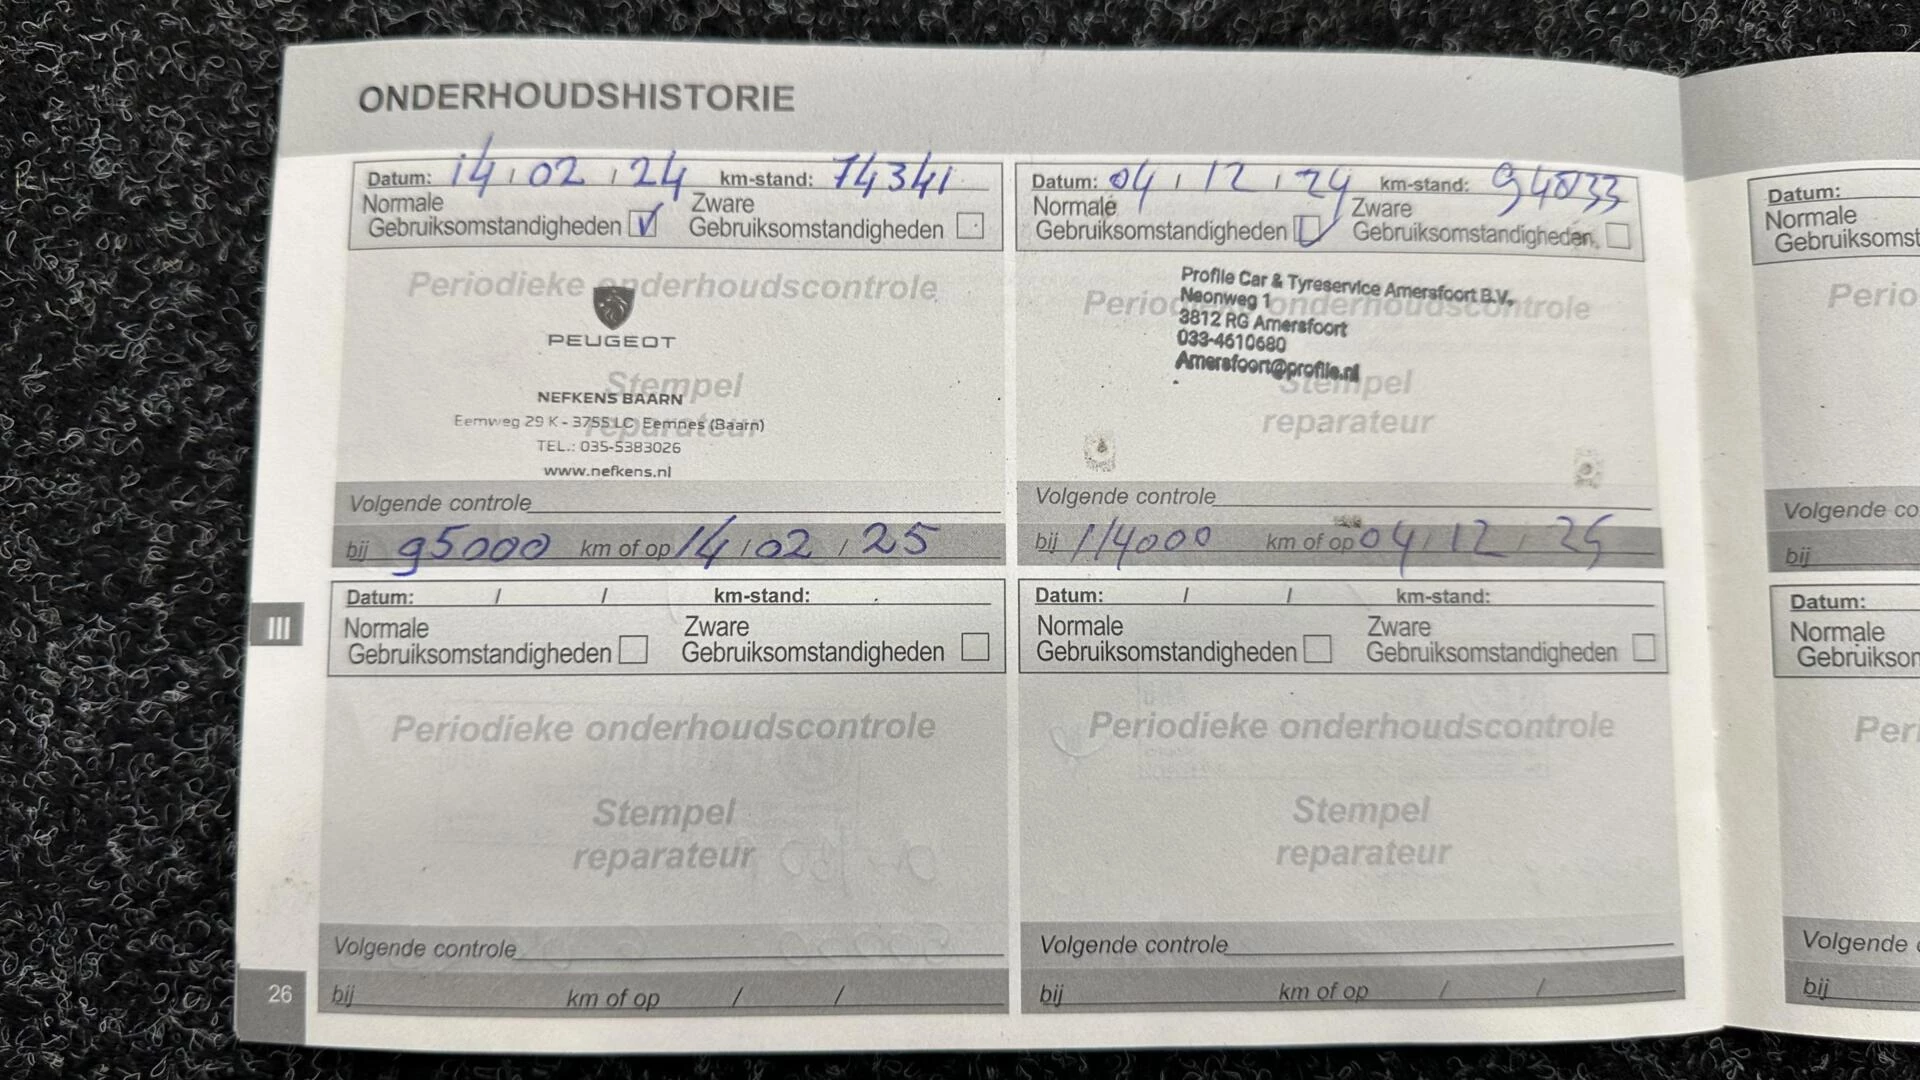 ONDERHOUDSHISTORIE
Datum: 14 / 02 / 24 km-stand: 74341
Normale Zware
Gebruiksomstandigheden Gebruiksomstandigheden
Periodieke onderhoudscontrole
PEUGEOT
Stempel
reparateur
NEFKENS BAARN
Eemweg 29 K - 3755 LC Eemnes (Baarn)
TEL.: 035-5383026
www.nefkens.nl
Volgende controle
bij 95000 km of op 14 / 02 / 25
Datum: 04 / 12 / 24 km-stand:
Normale Zware
Gebruiksomstandigheden Gebruiksomstandigheden
Periodieke onderhoudscontrole
Profile Car & Tyreservice Amersfoort B.V.
Neonweg 1
3812 RG Amersfoort
033-4610680
Amersfoort@profile.nl
Stempel
reparateur
Volgende controle
bij 114000 km of op 04 / 12 / 25
III
Datum: / / km-stand:
Normale Zware
Gebruiksomstandigheden Gebruiksomstandigheden
Periodieke onderhoudscontrole
Stempel
reparateur
Volgende controle
bij km of op / /
Datum: / / km-stand:
Normale Zware
Gebruiksomstandigheden Gebruiksomstandigheden
Periodieke onderhoudscontrole
Stempel
reparateur
Volgende controle
bij km of op / /
26
Datum:
Normale
Gebruiksomst
Perio
Volgende co
bij
Datum:
Normale
Gebruikson
Peri
Volgende
bij